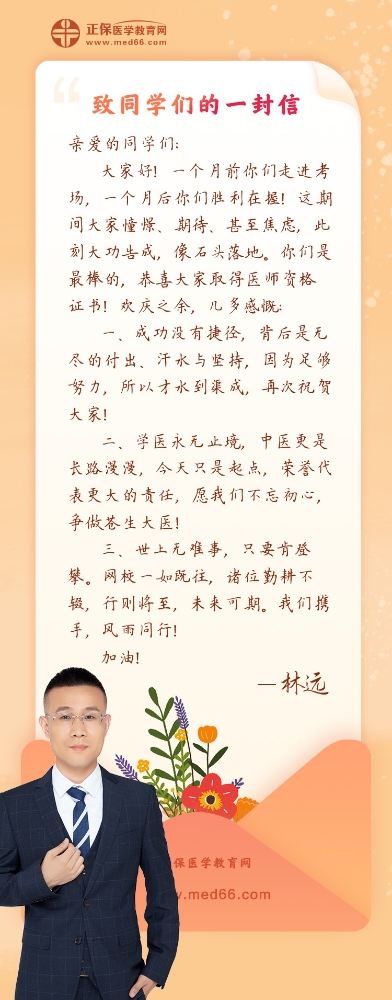 正保医学教育网
www.med66.com
致同学们的一封信
亲爱的同学们:
大家好! 一个月前你们走进考
场, 一个月后你们胜利在握! 这期
间大家憧憬、期待、甚至焦虑, 此
刻大功告成, 像石头落地。你们是
最棒的, 恭喜大家取得医师资格
证书! 欢庆之余, 几多感慨:
一、成功没有捷径, 背后是无
尽的付出、汗水与坚持, 因为足够
努力, 所以才水到渠成, 再次祝贺
大家!
二、学医永无止境, 中医更是
长路漫漫, 今天只是起点, 荣誉代
表更大的责任, 愿我们不忘初心,
争做苍生大医!
三、世上无难事, 只要肯登
攀。网校一如既往, 诸位勤耕不
辍, 行则将至, 未来可期。我们携
手, 风雨同行!
加油!
—林远
保医学教育网
www.med66.com